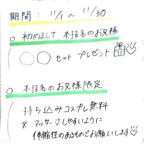 期間：11/1 〜 11/30
○ 初めまして 本指名のお客様
○○セット プレゼント
○ 本指名のお客様限定
持ち込みコスプレ無料
※ マッサージしやすいように
伸縮性のあるものでお願いします